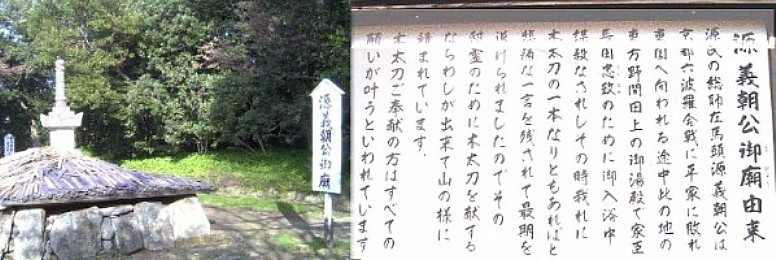 源義朝公御廟
源義朝公御廟由来
源氏の総帥左馬頭源義朝公は
京都六波羅合戦に平家に敗れ
東国へ向われる途中此の地の
東方野間田上の御湯殿で家臣
長田忠致のために御入浴中
謀殺なされしその時我れに
木太刀の一本なりともあればと
悲痛な一言を残されて最期を
遂げられましたのでその
慰霊のために木太刀を献する
ならわしが出来て山の様に
積まれています。
木太刀ご奉献の方はすべての
願いが叶うといわれています